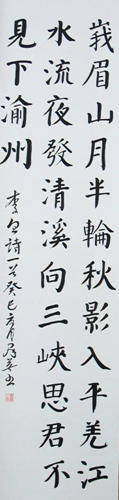 峩眉山月半輪秋影入平羌江
水流夜發清溪向三峽思君不
見下渝州
李白詩一首癸巳